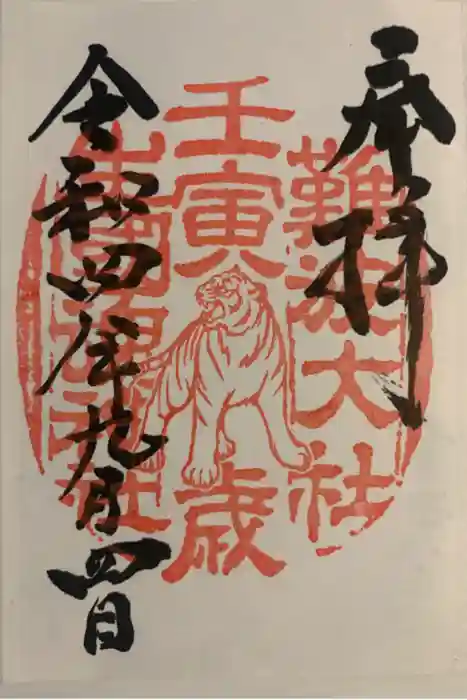 奉拝
難波大社
壬寅歳
生國魂神社
令和四年九月四日